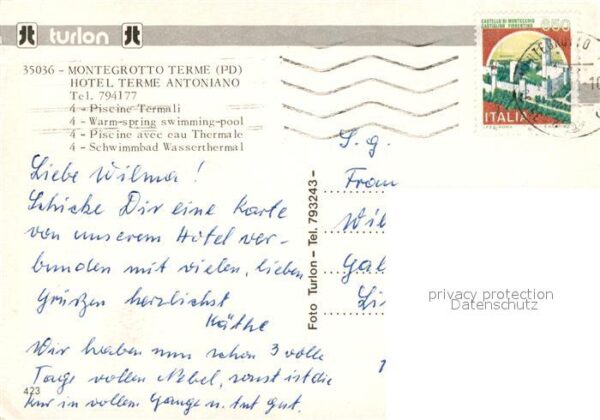 turlon
35036 - MONTEGROTTO TERME (PD)
HOTEL TERME ANTONIANO
Tel. 794177
4 - Piscine Termali
4 - Warm-spring swimming-pool
4 - Piscine avec eau Thermale
4 - Schwimbad Wasserthermal
CASTELLO DI MONTECCHIO
CASTIGLION FIORENTINO
850
ITALIA
MONTEGROTTO
Liebe Wilma!
Schicke Dir eine Karte
von unserem Hotel ver-
bunden mit vielen, lieben
Grüßen herzlichst
Käthe
Wir haben nun schon 3 volle
Tage vollen Nebel, sonst ist die
Kur in vollem Gange u. tut gut.
423
Foto Turlon - Tel. 793243 -
S. g.
Frau
Wil
Gal
Li
privacy protection
Datenschutz